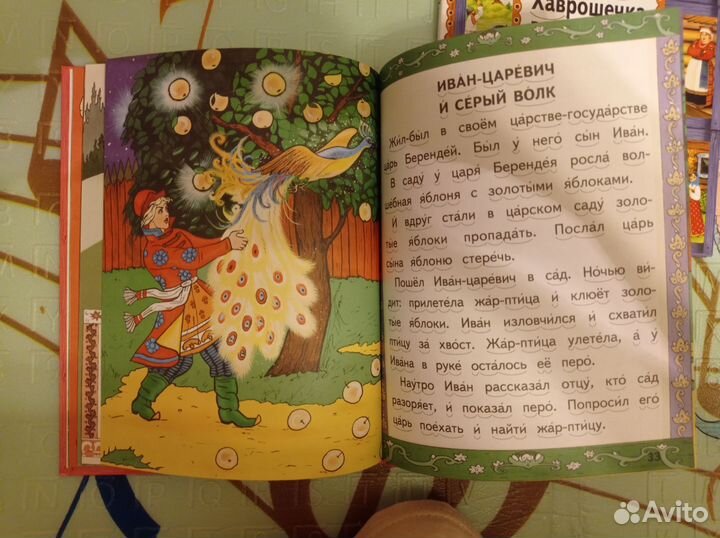 Хаврошечка
ИВА́Н-ЦАРЕ́ВИЧ
И́ СЕ́РЫЙ ВО́ЛК
Жи́л-бы́л в своём ца́рстве-госуда́рстве
ца́рь Беренде́й. Бы́л у́ него́ сын Ива́н.
В саду́ у́ царя́ Беренде́я росла́ вол-
ше́бная я́блоня с золоты́ми я́блоками.
И́ вдру́г ста́ли в ца́рском саду́ золо-
ты́е я́блоки пропада́ть. Посла́л ца́рь
сы́на я́блоню стере́чь.
Пошёл Ива́н-царе́вич в са́д. Но́чью ви́-
дит: прилете́ла жа́р-пти́ца и́ клюёт золо-
ты́е я́блоки. Ива́н изловчи́лся и́ схвати́л
пти́цу за́ хво́ст. Жа́р-пти́ца улете́ла, а́ у́
Ива́на в руке́ оста́лось её перо́.
Нау́тро Ива́н рассказа́л отцу́, кто́ са́д
разоря́ет, и́ показа́л перо́. Попроси́л его́
ца́рь пое́хать и́ найти́ жа́р-пти́цу.
33
Avito